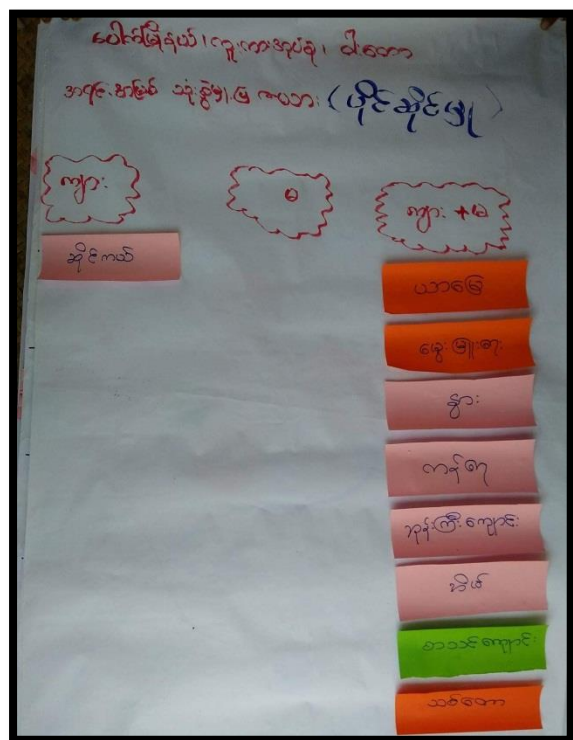 ပေါက်မြိုနယ်၊ ကူးကားအုပ်စု၊ ဝါးတော
အရင်းအမြစ် သုံးစွဲမှုပြ ဇယား (ပိုင်ဆိုင်မှု)
ကျား
မ
ကျား + မ
ဆိုင်ကယ်
ယာမြေ
မွေးမြူရေး
နွား
ကန်ရေ
ဘုန်းကြီးကျောင်း
အိမ်
စာသင်ကျောင်း
သစ်တော